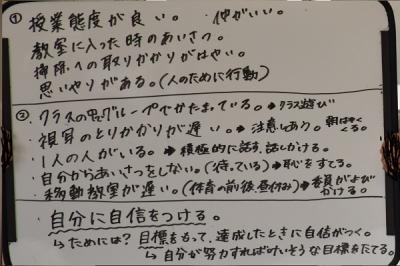 ① 授業態度が良い。 仲がいい。
教室に入った時のあいさつ。
掃除への取りかかりがはやい。
思いやりがある。(人のために行動)
② ・クラスの中でグループでかたまっている。→クラス遊び
・視写のとりかかりが遅い。→注意しあう。朝はやくくる。
・1人の人がいる。→積極的に話す、話しかける。
・自分からあいさつをしない。(待っている)→恥をすてる。
・移動教室が遅い。(体育の前後、昼休み)→委員がよびかける。
・自分に自信をつける。
↳ためには?目標をもって、達成したときに自信がつく。
↳自分が努力すればいけそうな目標をたてる。